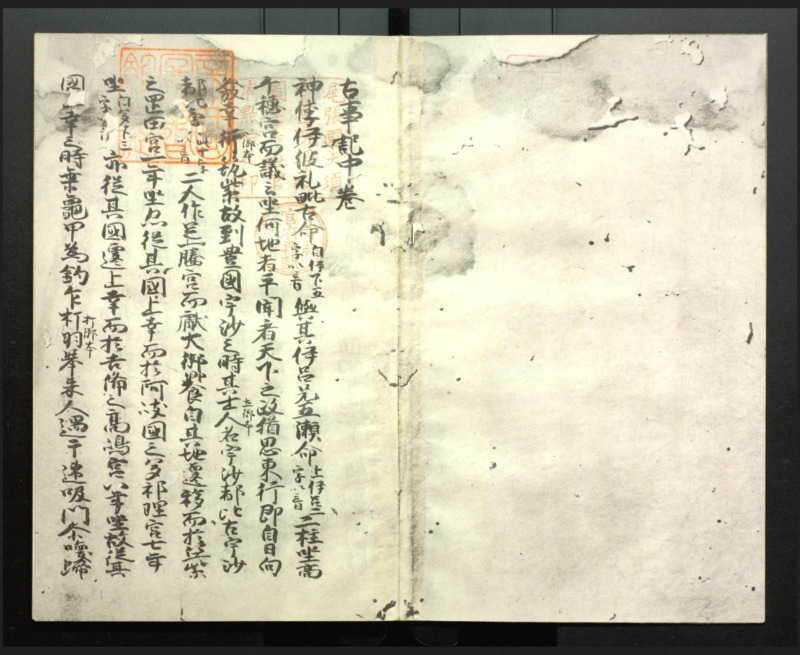 古事記中巻
神倭伊波礼毗古命 自伊下五字以音 與其伊呂兄五瀬命 上伊呂二字以音 二柱坐高
千穂宮而議云坐何地者平聞者天下之政猶思東行即自日向
發幸行筑紫故到豊國宇沙之時其土人名宇沙都比古宇沙
都比売 此十字以音 二人作足一騰宮而獻大御饗自其地遷移而於竺紫
之罡田宮一年坐亦従其國上幸而於阿岐國之多祁理宮七年
坐 自多下三字以音 亦従其國遷上幸而於吉備之高嶋宮八年坐故従其
國上幸之時乗龜甲為釣乍打羽挙来人遇于速吸門尓喚帰